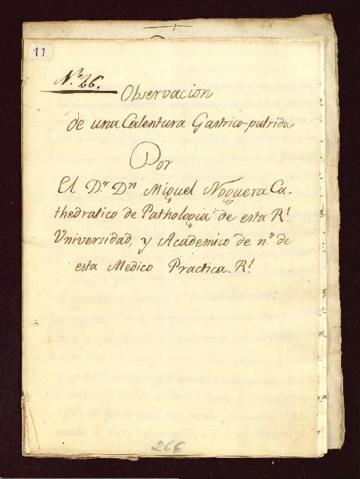 11
N.º 26.
Observacion
de una Calentura Gastrico-putrida
Por
El Dr. Dn. Miguel Noguera Ca-
thedratico de Pathologia de esta Rl.
Universidad, y Academico de n.º de
esta Medico Practica Rl.
266